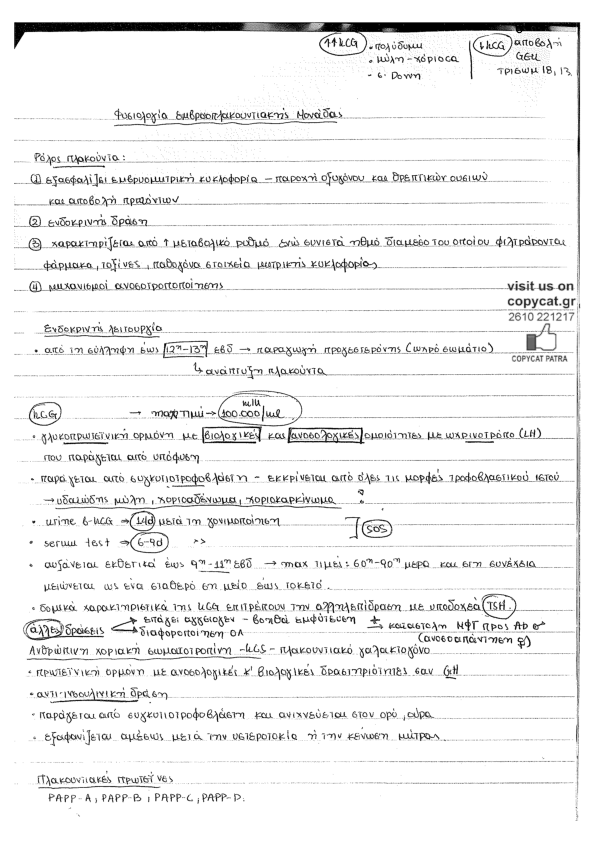 ↑↑hCG • πολύδυμη
• μύλη - χόριοca
- σ. Down
↓hCG αποβολή
GEU
τρισωμ 18, 13.
Φυσιολογία εμβρυοπλακουντιακής Μονάδας
Ρόλος πλακούντα:
① εξασφαλίζει εμβρυομητρική κυκλοφορία - παροχή οξυγόνου και θρεπτικών ουσιών
και αποβολή προϊόντων
② ενδοκρινή δράση
③ χαρακτηρίζεται από ↑ μεταβολικό ρυθμό ενώ συνιστά ηθμό διαμέσο του οποίου φιλτράρονται
φάρμακα, τοξίνες, παθογόνα στοιχεία μητρικής κυκλοφορίας
④ μηχανισμοί ανοσοτροποποίησης
visit us on
copycat.gr
2610 221217
COPYCAT PATRA
Ενδοκρινής λειτουργία
• από τη σύλληψη έως 12η-13η εβδ → παραγωγή προγεστερόνης (ωχρό σωμάτιο)
↳ ανάπτυξη πλακούντα
hCG → max τιμή → 100.000 mIU/ml
• γλυκοπρωτεϊνική ορμόνη με βιολογικές και ανοσολογικές ομοιότητες με ωχρινοτρόπο (LH)
που παράγεται από υπόφυση
• παράγεται από συγκυτιοτροφοβλάστη - εκκρίνεται από όλες τις μορφές τροφοβλαστικού ιστού
→ υδατώδης μύλη, χοριοαδένωμα, χοριοκαρκίνωμα ?
• urine β-hCG → 14d μετά τη γονιμοποίηση
• serum test → 6-9d >>
SOS
• αυξάνεται εκθετικά έως 9η-11η εβδ → max τιμές: 60η-90η μέρα και στη συνέχεια
μειώνεται ως ένα σταθερό σημείο έως τοκετό.
• δομικά χαρακτηριστικά της hCG επιτρέπουν την αλληλεπίδραση με υποδοχέα TSH.
άλλες δράσεις επάγει αγγειογεν - βοηθά εμφύτευση
διαφοροποίηση
+ καταστολή ΜΦΓ προς
(ανοσοαπάντηση ♀)
Ανθρώπινη χοριακή σωματοτροπίνη - hCS - πλακουντιακό γαλακτογόνο
• πρωτεϊνική ορμόνη με ανοσολογικές κ' βιολογικές δραστηριότητες σαν GH
• αντι-ινσουλινική δράση
- παράγεται από συγκυτιοτροφοβλάστη και ανιχνεύεται στον ορό, ούρα
• εξαφανίζεται αμέσως μετά την υστεροτοκία ή την κένωση μήτρας.
Πλακουντιακές πρωτεΐνες
PAPP-A, PAPP-B, PAPP-C, PAPP-D.